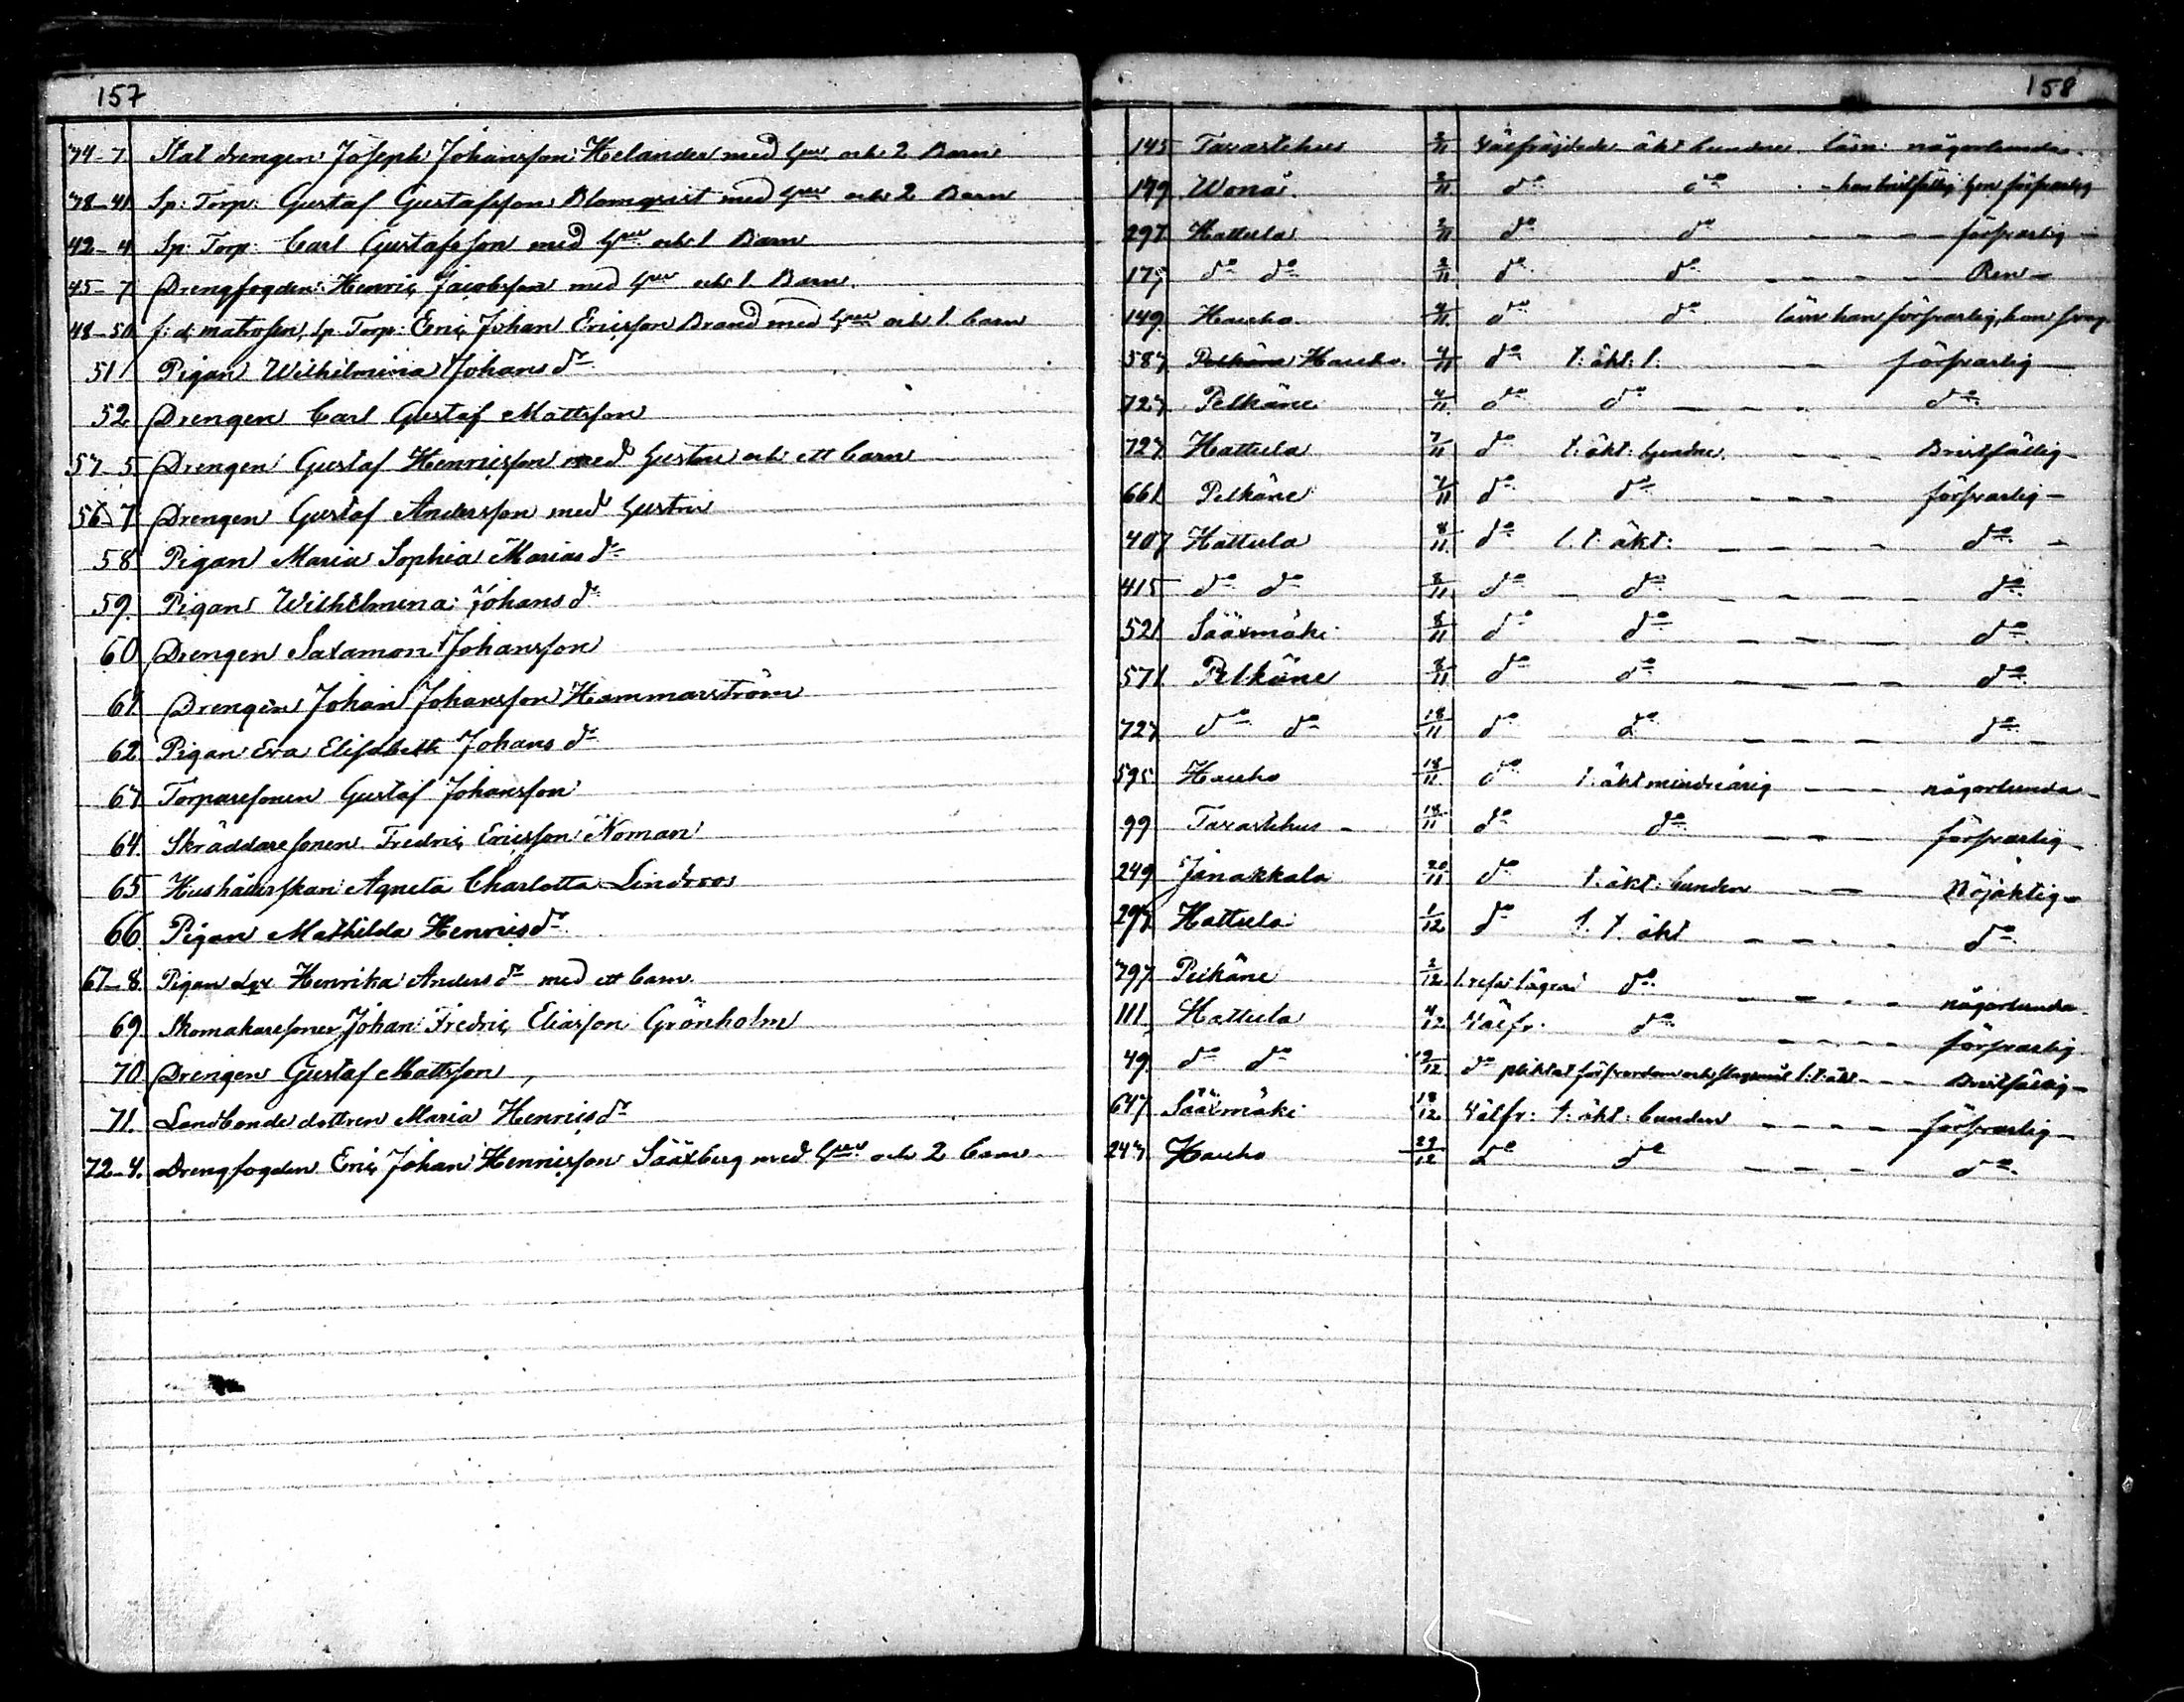 157
74-7 Stat drengen Joseph Johansson Helander med Hru och 2 Barn
78-41 Sp: Torp: Gustaf Gustafsson Blomqvist med Hru och 2 Barn
42-4 Sp: Torp: Carl Gustafsson med Hru och 1 Barn
45-7 Drengfogden Henric Jacobsson med Hru och 1 Barn
48-50 f: d: matrosen, Sp: Torp: Eric Johan Ericsson Brand med Hru och 1 barn
51 Pigan Wilhelmina Johans dr
52 Drengen Carl Gustaf Mattsson
57-5 Drengen Gustaf Henricsson med hustru och ett barn
56-7 Drengen Gustaf Andersson med hustru
58 Pigan Maria Sophia Marias dr
59. Pigan Wilhelmina Johans dr
60 Drengen Salamon Johansson
61 Drengen Johan Johansson Hammarström
62. Pigan Eva Elisabeth Johans dr
67 Torparesonen Gustaf Johansson
64. Skräddaresonen Fredric Ericsson Noman
65 Hushållerskan Agneta Charlotta Lindroos
66. Pigan Mathilda Henrics dr
67-8. Pigan Henrika Anders dr med ett barn.
69. Skomakaresonen Johan Fredric Eliasson Grönholm
70 Drengen Gustaf Mattsson
71. Landbonde dottren Maria Henrics dr
72-4. Drengfogden Eric Johan Henricsson Sääxberg med Hru och 2 barn
158
145 Tavastehus 2/11 Välfräjdade äkt. bundne läsn: någorlunda
149 Wonå 2/11 do do han bristfällig hon försvarlig
297 Hattula 2/11 do do försvarlig
177 do do 2/11 do do Ren
149 Hauho 4/11 do do läsn han försvarlig, hon svag
587 Pelkäne Hauho 4/11 do t: äkt: l: försvarlig
727 Pelkäne 4/11 do do do
727 Hattula 7/11 do t: äkt: bundne Bristfällig
661 Pelkäne 7/11 do do försvarlig
407 Hattula 8/11 do l. t. äkt: do
415 do do 8/11 do do do
521 Sääxmäki 8/11 do do do
571 Pelkäne 8/11 do do do
727 do do 18/11 do do do
595 Hauho 18/11 do t: äkt minderårig någorlunda
99 Tavastehus 18/11 do do försvarlig
249 Janakkala 20/11 do t: äkt: bunden Nöjaktig
297 Hattula 1/12 do l. t. äkt do
797 Pelkäne 2/12 do någorlunda
111 Hattula 4/12 Välfr: do försvarlig
49 do do 12/12 do pliktat för svordom och slagsmål l: t: äkt Bristfällig
647 Sääxmäki 18/12 Välfr: t: äkt: bunden försvarlig
247 Hauho 29/12 do do do